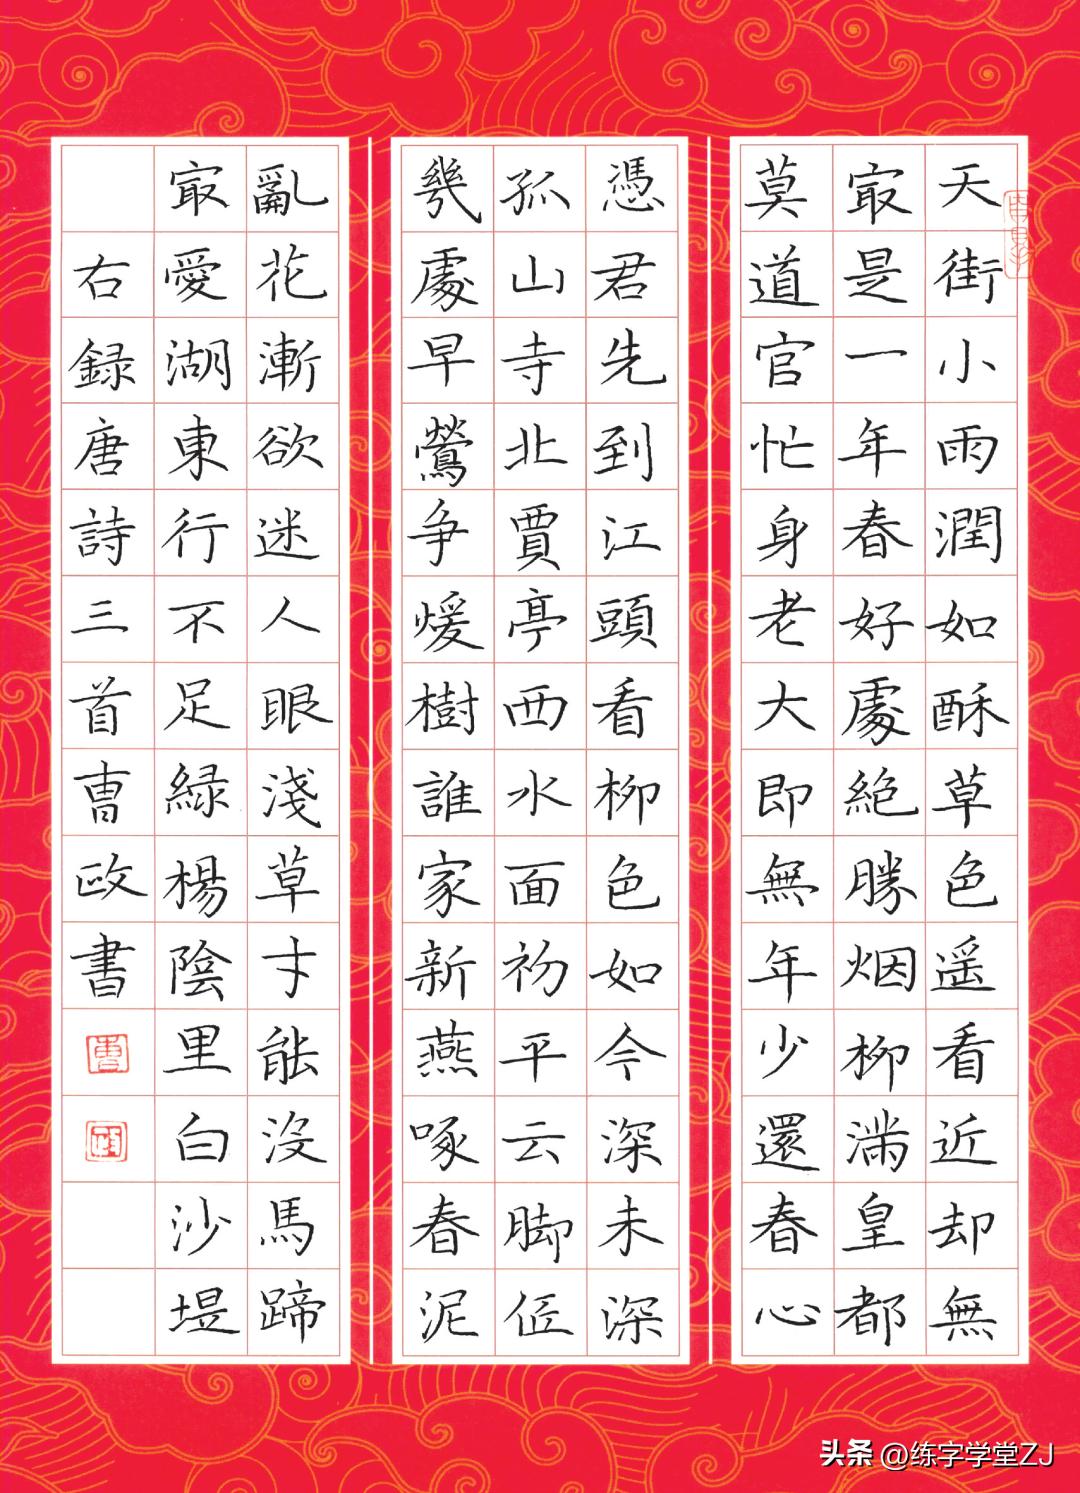 天街小雨潤如酥草色遥看近却無
㝡是一年春好處絶勝烟柳滿皇都
莫道官忙身老大即無年少還春心
憑君先到江頭看柳色如今深未深
孤山寺北賈亭西水面初平云脚低
幾處早鶯争煖樹誰家新燕啄春泥
亂花漸欲迷人眼淺草才能没馬蹄
㝡愛湖東行不足緑楊陰里白沙堤
右録唐詩三首曹政書
曹
政
头条 @练字学堂ZJ